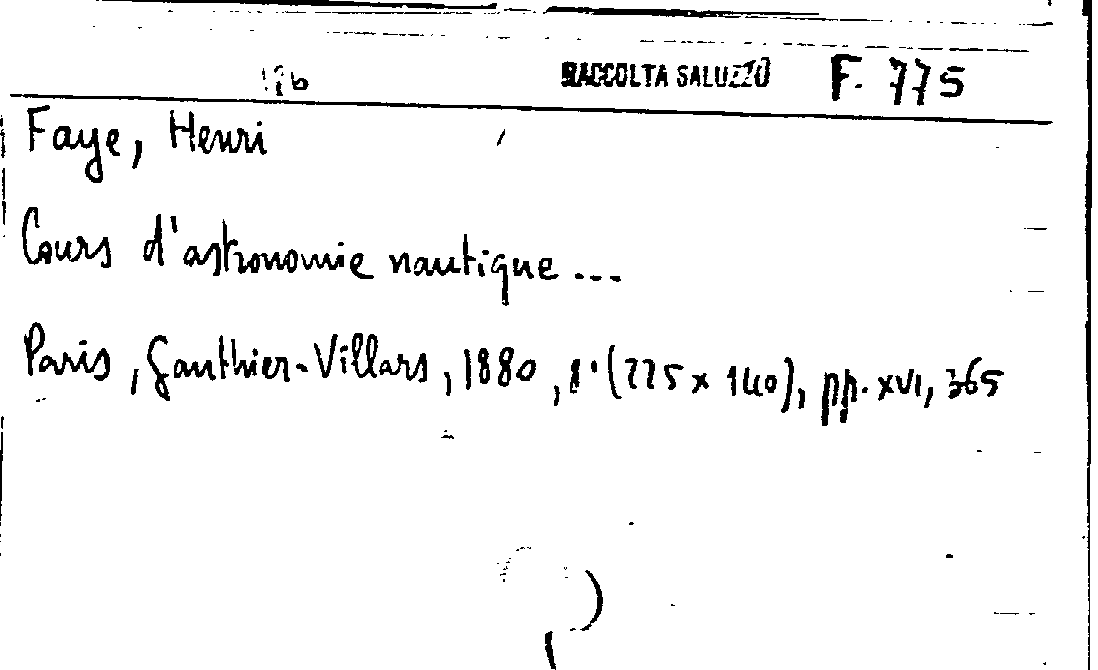 RACCOLTA SALUZZO F. 775
Faye, Henri
Cours d'astronomie nautique ...
Paris, Gauthier-Villars, 1880, 8° (225 x 140), pp. XVI, 365